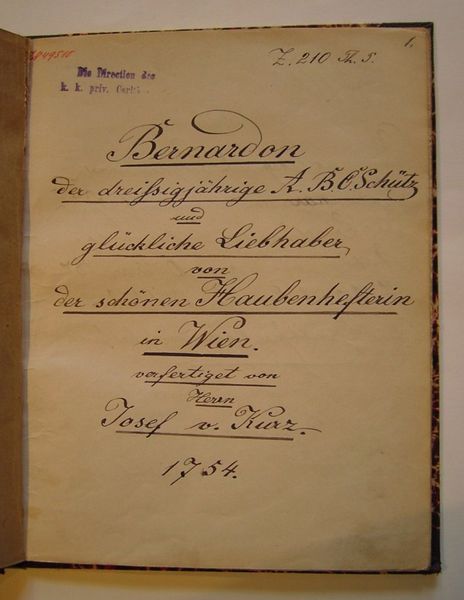 1.
Z. 210 Th. S.
Die Direction des
k. k. priv.
Bernardon
der dreissigjährige A. B. C. Schütz
und
glückliche Liebhaber
von
der schönen Haubenhefterin
in Wien.
verfertiget von
Herrn
Josef v. Kurz.
1754.